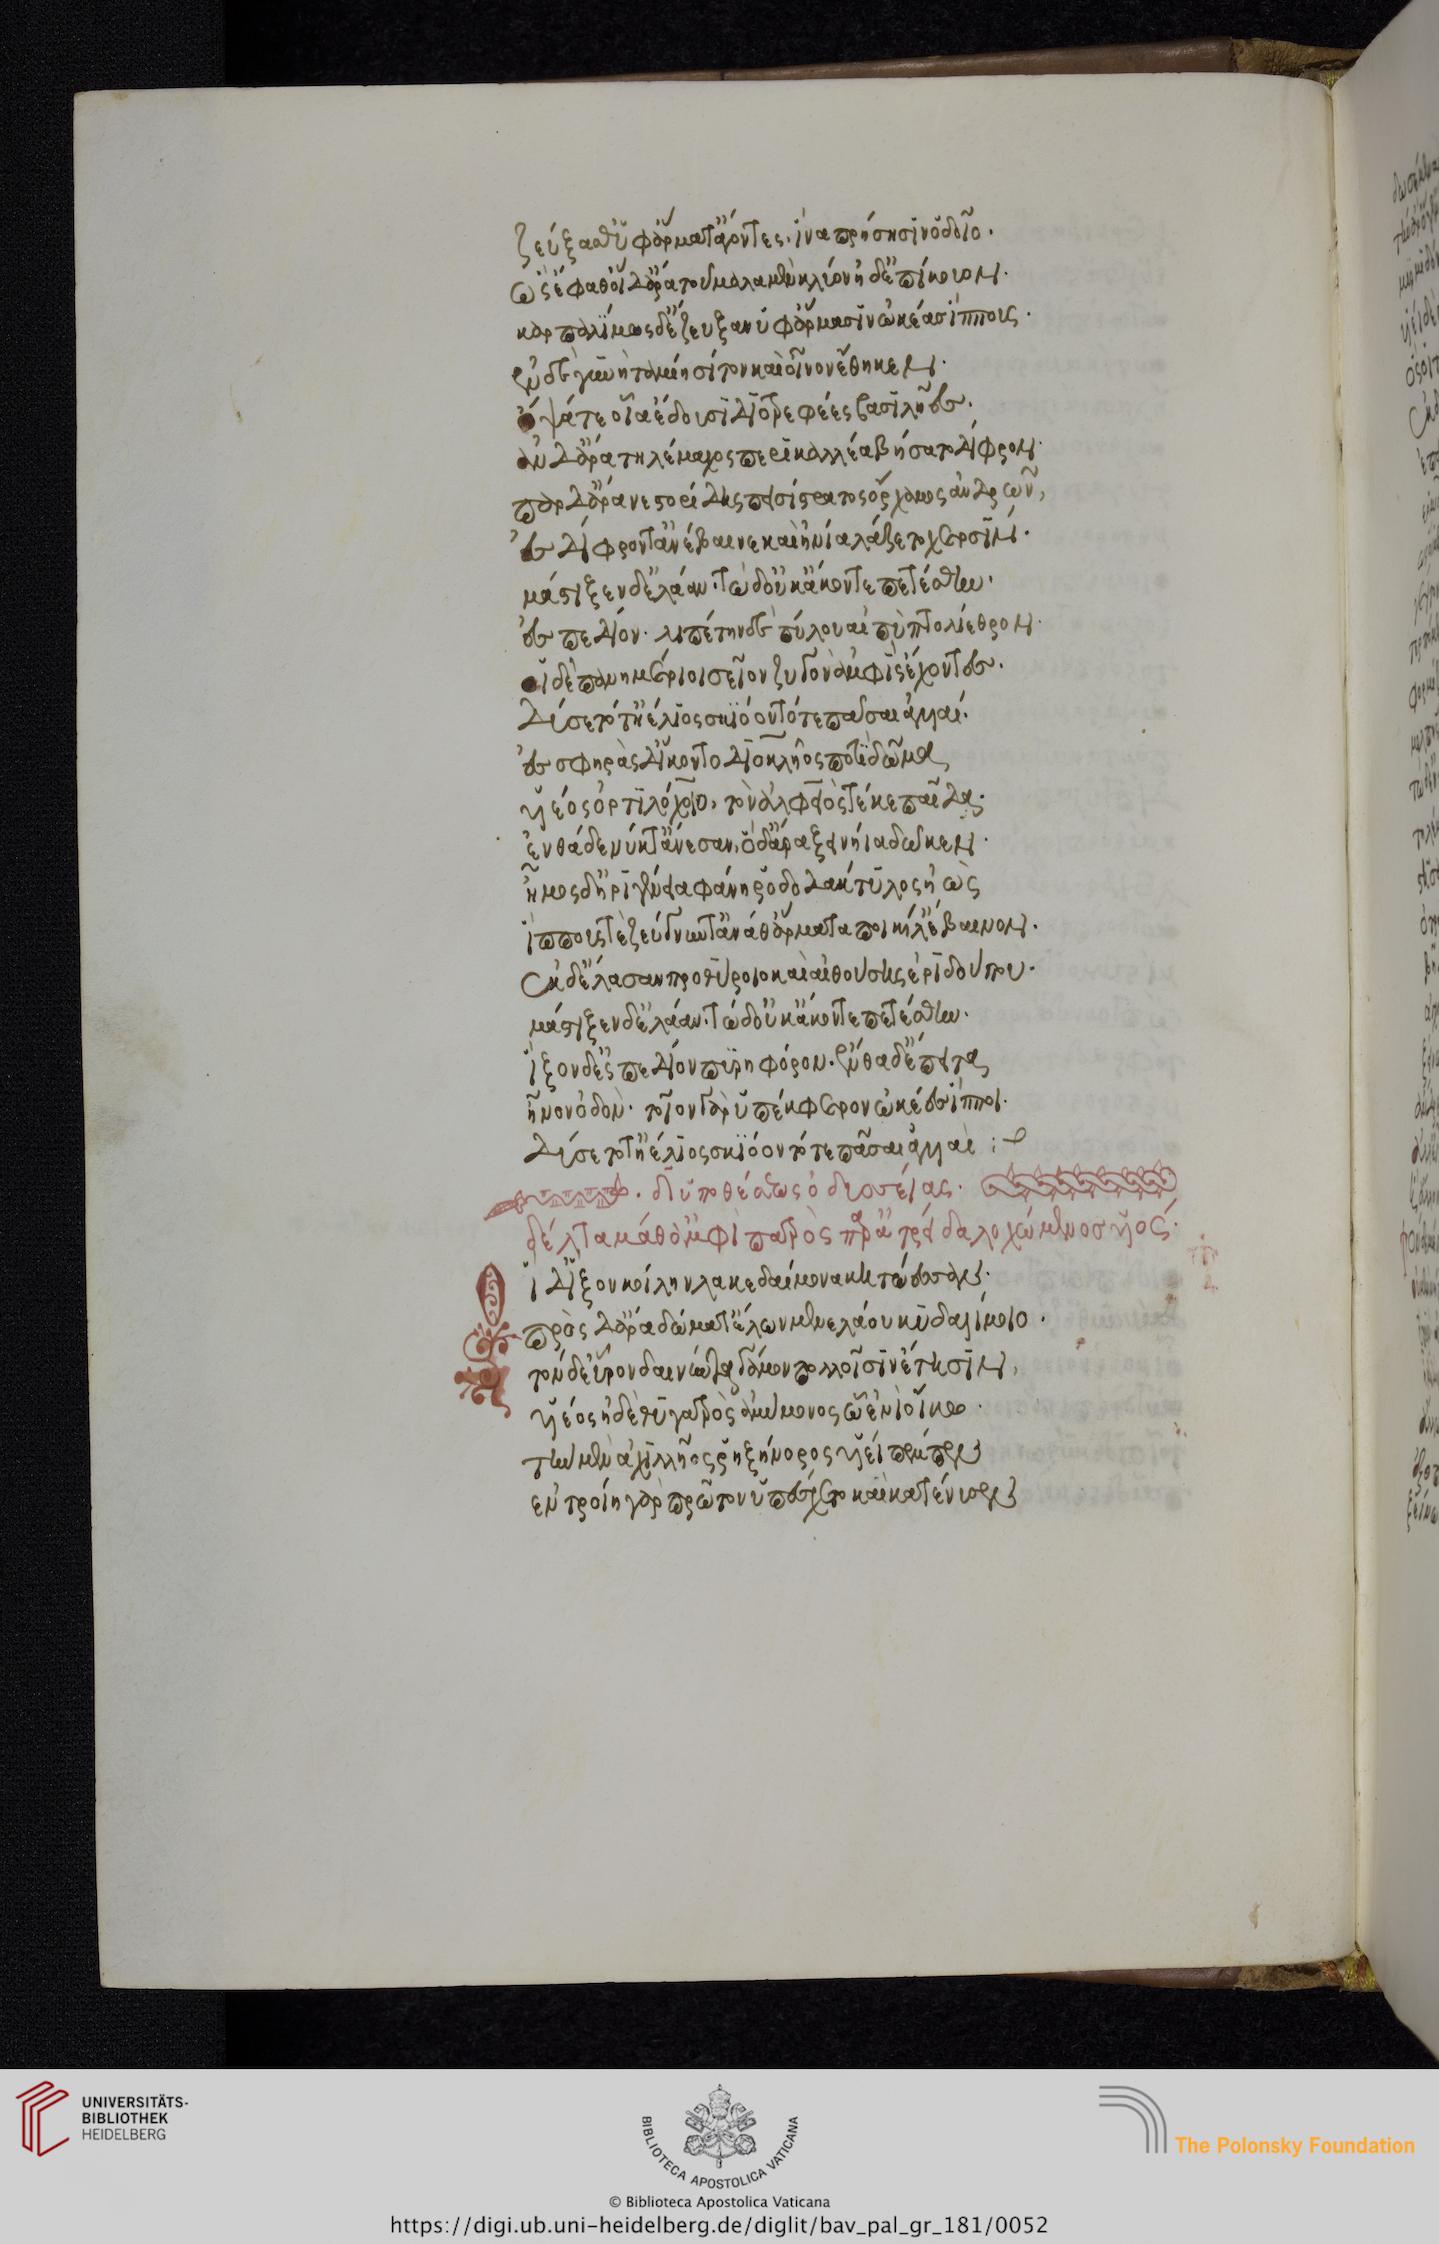 ζεύξαθ' ὑφ' ἅρματ' ἄγοντες, ἵνα πρήσσησιν ὁδοῖο.
ὣς ἔφαθ' οἱ δ' ἄρα τοῦ μάλα μὲν κλύον ἠδ' ἐπίθοντο.
καρπαλίμως δ' ἔζευξαν ὑφ' ἅρμασιν ὠκέας ἵππους.
ἐν δὲ γυνὴ ταμίη σῖτον καὶ οἶνον ἔθηκεν.
ὄψά τε οἷα ἔδουσι διοτρεφέες βασιλῆες.
ἂν δ' ἄρα τηλέμαχος περικαλλέα βήσατο δίφρον.
πὰρ δ' ἄρα νεστορίδης πεισίστρατος ὄρχαμος ἀνδρῶν,
ἐς δίφρον τ' ἀνέβαινε καὶ ἡνία λάζετο χερσίν.
μάστιξεν δ' ἐλάαν. τὼ δ' οὐκ ἄκοντε πετέσθην.
ἐς πεδίον. λιπέτην δὲ πύλου αἰπὺ πτολίεθρον.
οἱ δὲ πανημέριοι σεῖον ζυγὸν ἀμφὶς ἔχοντες.
δύσετό τ' ἠέλιος σκιόοντό τε πᾶσαι ἀγυιαί.
ἐς φηρὰς δ' ἵκοντο διοκλῆος ποτὶ δῶμα
υἱέος ὀρτιλόχοιο, τὸν ἀλφειὸς τέκε παῖδα.
ἔνθα δὲ νύκτ' ἄεσαν, ὁ δ' ἄρα ξεινήια δῶκεν.
ἦμος δ' ἠριγένεια φάνη ῥοδοδάκτυλος ἠὼς
ἵππους τε ζεύγνυντ' ἀνά θ' ἅρματα ποικίλ' ἔβαινον.
ἐκ δ' ἔλασαν προθύροιο καὶ αἰθούσης ἐριδούπου.
μάστιξεν δ' ἐλάαν. τὼ δ' οὐκ ἄκοντε πετέσθην.
ἷξον δ' ἐς πεδίον πυρηφόρον. ἔνθα δ' ἔπειτα
ἦνον ὁδόν. τοῖον γὰρ ὑπέκφερον ὠκέες ἵπποι.
δύσετό τ' ἠέλιος σκιόοντό τε πᾶσαι ἀγυιαί:
δ ὑποθέσεως ὀδυσσείας.
δέλτα μάθον ἀμφὶ πατρὸς παρ' ἀτρείδα λοχώμενος υἱός.
Οἱ δ' ἷξον κοίλην λακεδαίμονα κητώεσσαν.
πρὸς δ' ἄρα δώματ' ἔλων μενελάου κυδαλίμοιο.
τὸν δ' εὗρον δαινύντα γάμον πολλοῖσιν ἔτησιν,
υἱέος ἠδὲ θυγατρὸς ἀμύμονος ᾧ ἐνὶ οἴκῳ.
τὴν μὲν ἀχιλλῆος ῥηξήνορος υἱέι πέμπεν
ἐν τροίῃ γὰρ πρῶτον ὑπέσχετο καὶ κατένευσεν
UNIVERSITÄTS-
BIBLIOTHEK
HEIDELBERG
BIBLIOTECA APOSTOLICA VATICANA
The Polonsky Foundation
© Biblioteca Apostolica Vaticana
https://digi.ub.uni-heidelberg.de/diglit/bav_pal_gr_181/0052